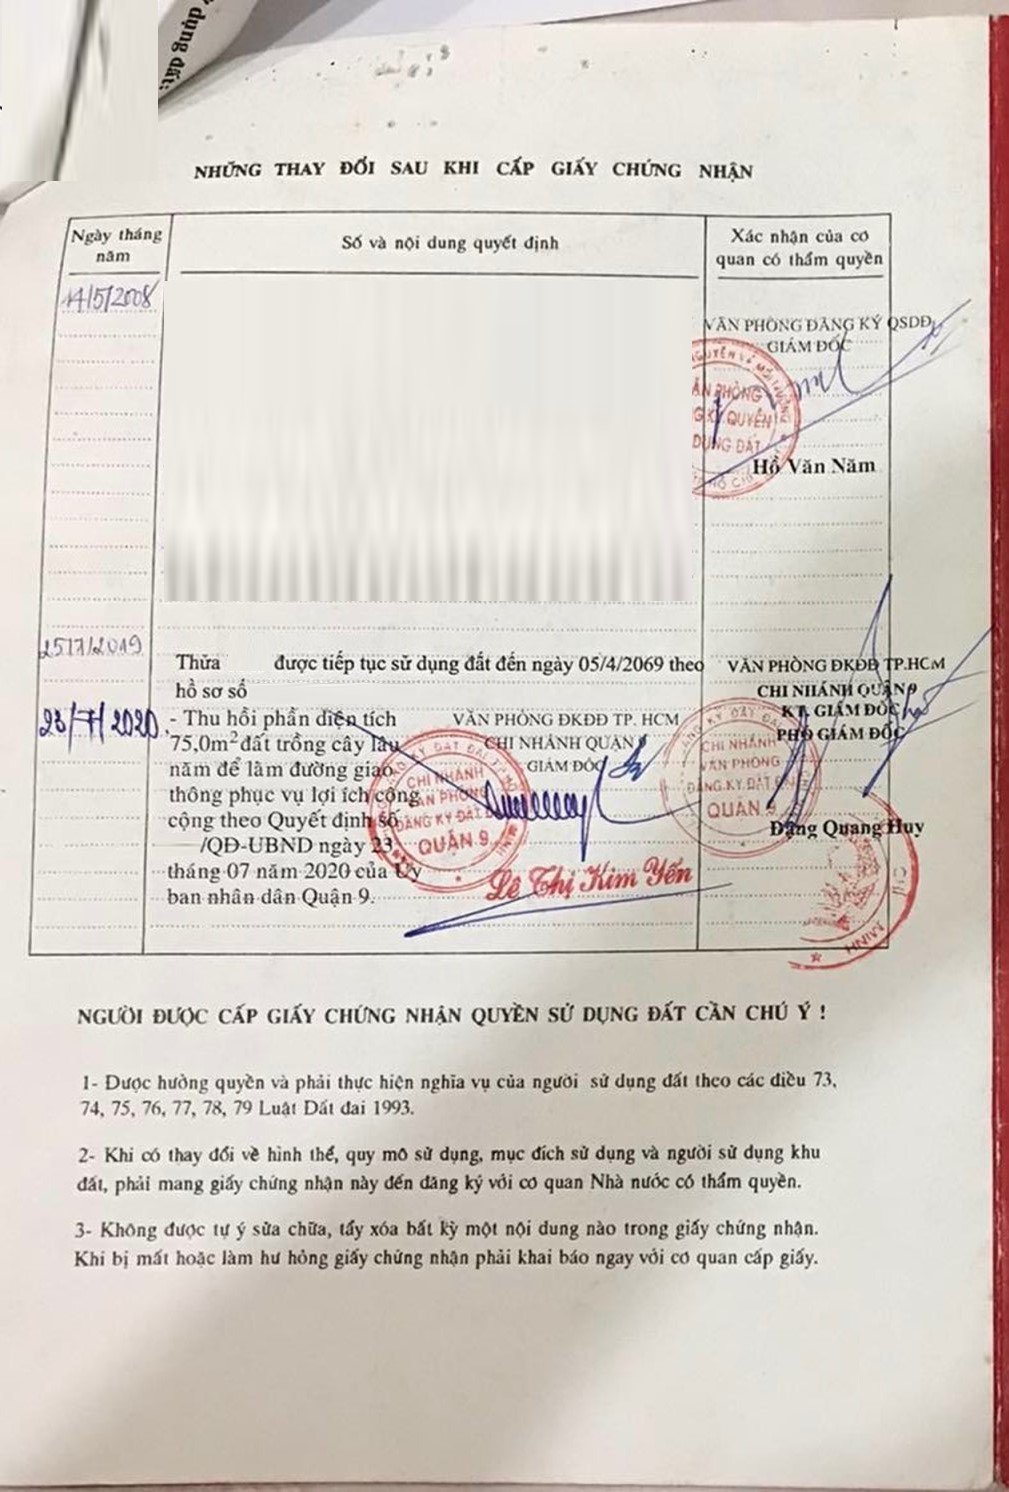 NHỮNG THAY ĐỔI SAU KHI CẤP GIẤY CHỨNG NHẬN
Ngày tháng năm
Số và nội dung quyết định
Xác nhận của cơ quan có thẩm quyền
14/5/2008
VĂN PHÒNG ĐĂNG KÝ QSDĐ
GIÁM ĐỐC
Hồ Văn Năm
25/7/2019
Thửa được tiếp tục sử dụng đất đến ngày 05/4/2069 theo
hồ sơ số
VĂN PHÒNG ĐKĐĐ TP.HCM
CHI NHÁNH QUẬN 9
KT. GIÁM ĐỐC
PHÓ GIÁM ĐỐC
Đặng Quang Huy
23/7/2020.
- Thu hồi phần diện tích
75,0m² đất trồng cây lâu
năm để làm đường giao
thông phục vụ lợi ích cộng
cộng theo Quyết định số
/QĐ-UBND ngày 23
tháng 07 năm 2020 của Ủy
ban nhân dân Quận 9.
VĂN PHÒNG ĐKĐĐ TP. HCM
CHI NHÁNH QUẬN 9
GIÁM ĐỐC
CHI NHÁNH
VĂN PHÒNG
ĐĂNG KÝ ĐẤT ĐAI
QUẬN 9
Lê Thị Kim Yến
CHI NHÁNH
VĂN PHÒNG
ĐĂNG KÝ ĐẤT ĐAI
QUẬN 9
NGƯỜI ĐƯỢC CẤP GIẤY CHỨNG NHẬN QUYỀN SỬ DỤNG ĐẤT CẦN CHÚ Ý !
1- Được hưởng quyền và phải thực hiện nghĩa vụ của người sử dụng đất theo các điều 73,
74, 75, 76, 77, 78, 79 Luật Đất đai 1993.
2- Khi có thay đổi về hình thể, quy mô sử dụng, mục đích sử dụng và người sử dụng khu
đất, phải mang giấy chứng nhận này đến đăng ký với cơ quan Nhà nước có thẩm quyền.
3- Không được tự ý sửa chữa, tẩy xóa bất kỳ một nội dung nào trong giấy chứng nhận.
Khi bị mất hoặc làm hư hỏng giấy chứng nhận phải khai báo ngay với cơ quan cấp giấy.